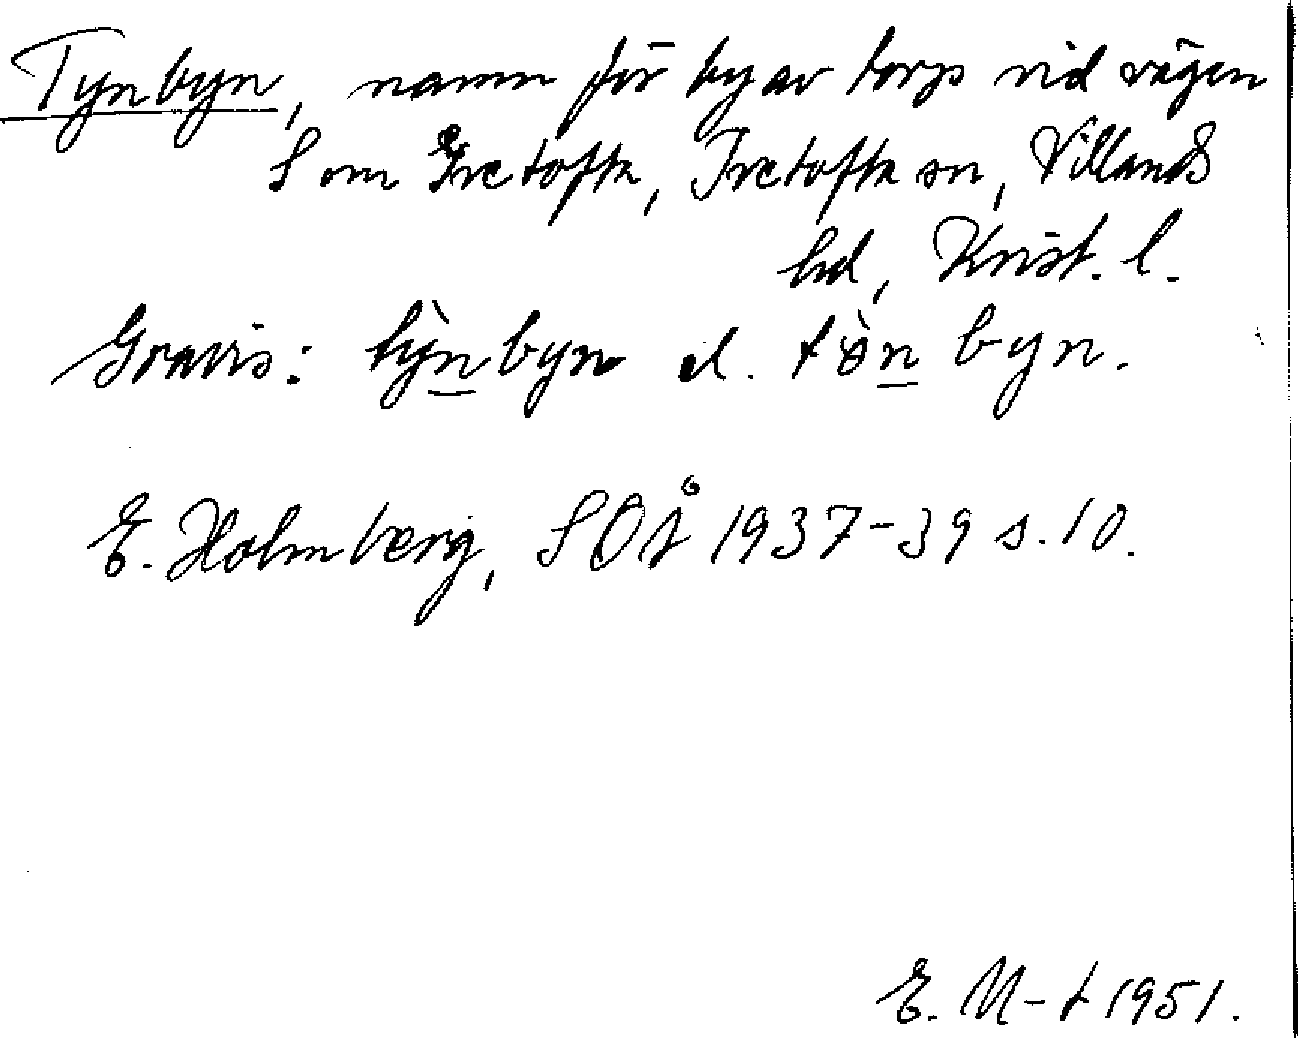 Tynbyn, namn för by av torp vid vägen
S om Ivetofta, Ivetofta sn, Villands
hd, Krist. l.
Gravis: tỳnbyn el. tø̀nbyn.
E. Holmberg, SOÅ 1937-39 s. 10.
E. M-t 1951.